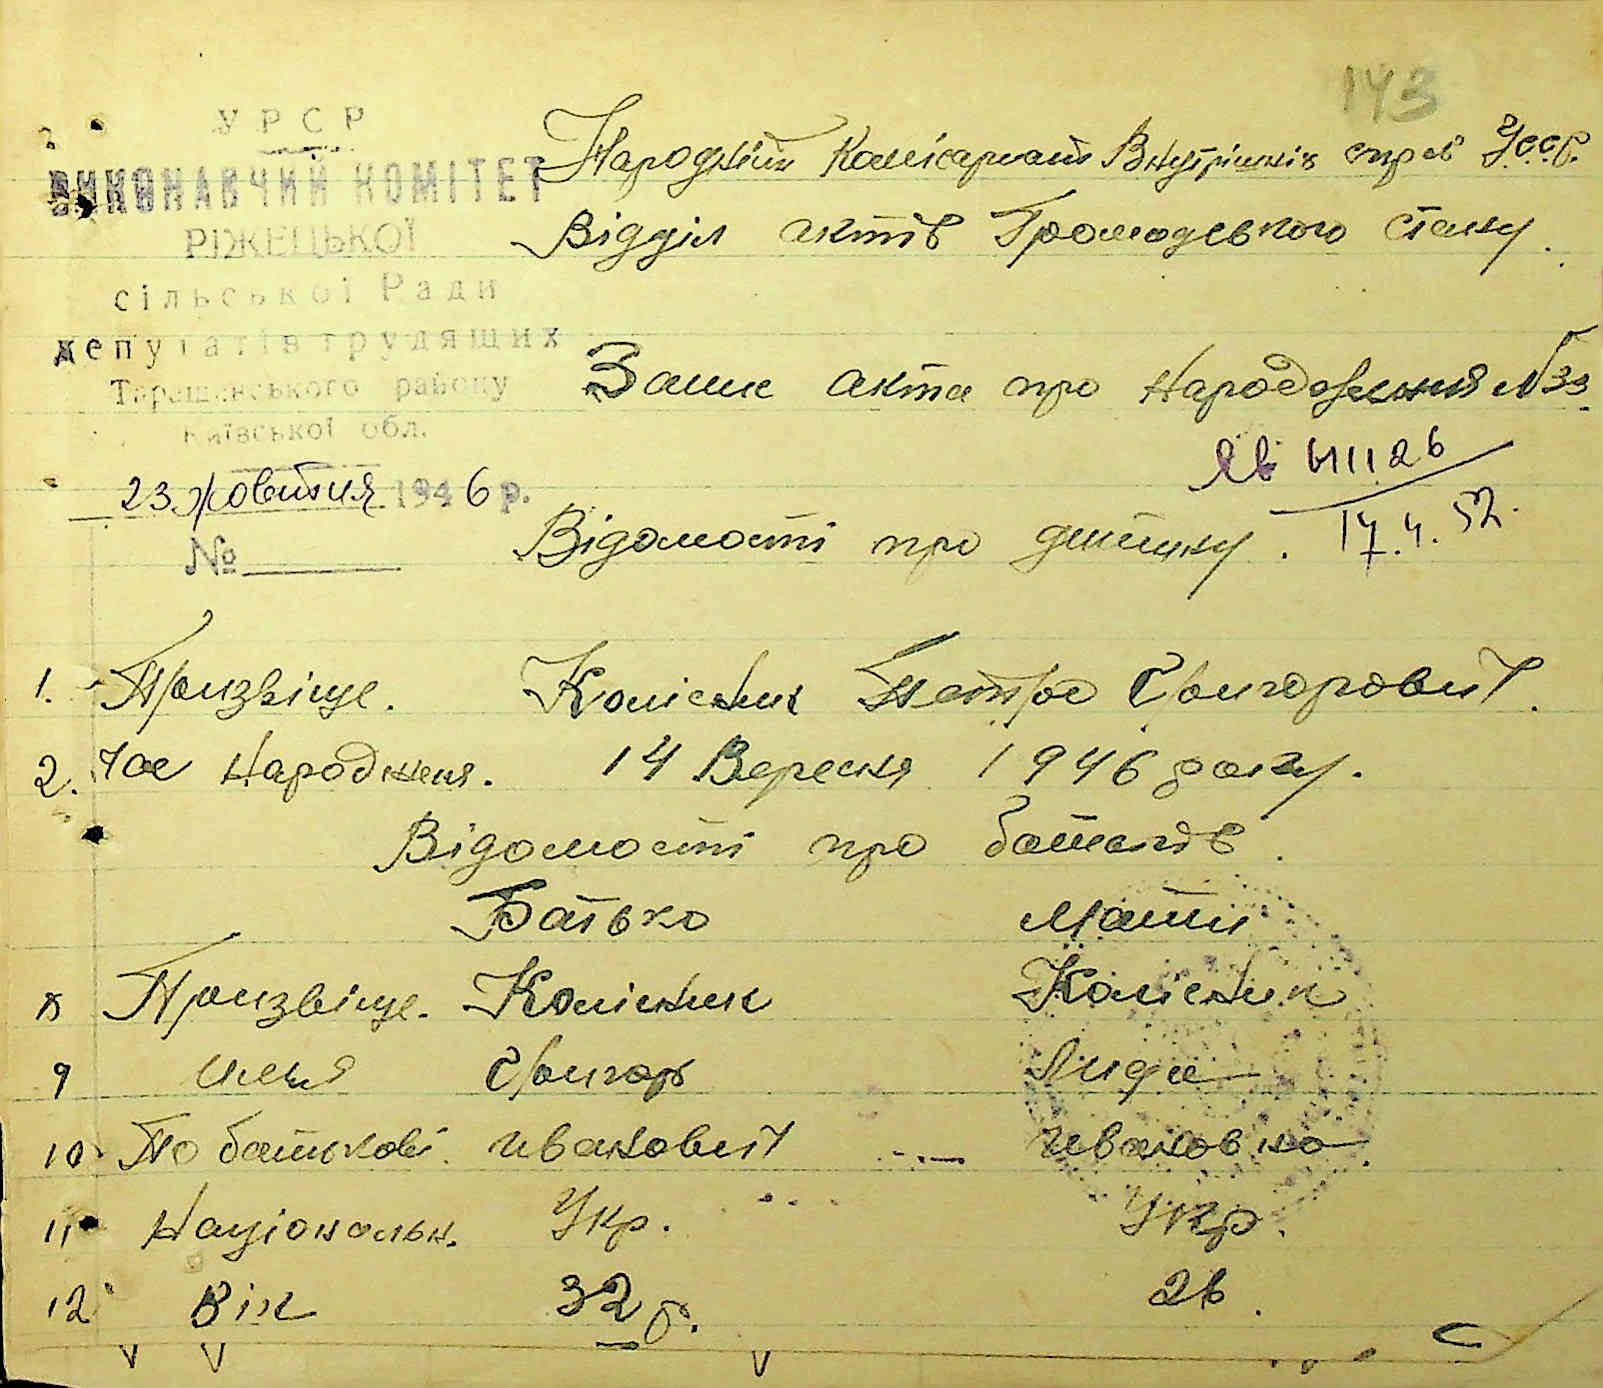 143
УРСР
ВИКОНАВЧИЙ КОМІТЕТ
РІЖЕЦЬКОЇ
сільської Ради
депутатів трудящих
Таращанського району
Київської обл.
23 жовтня 1946 р.
№
Народній Комісаріат Внутрішніх справ УССР.
Відділ актів Громодського стану.
Запис акта про народження N 33
17.4.52.
Відомості про дитину.
1. Призвіще. Колісник Петро Григорович.
2. Час народженя. 14 Вересня 1946 року.
Відомості про батьків.
Батько Мати
8 Призвіще. Колісник Колісник
9 имья Григорь Лидия
10 По батькові. иванович ивановна
11 Національн. Укр. Укр.
12 Вік 32 р. 26.